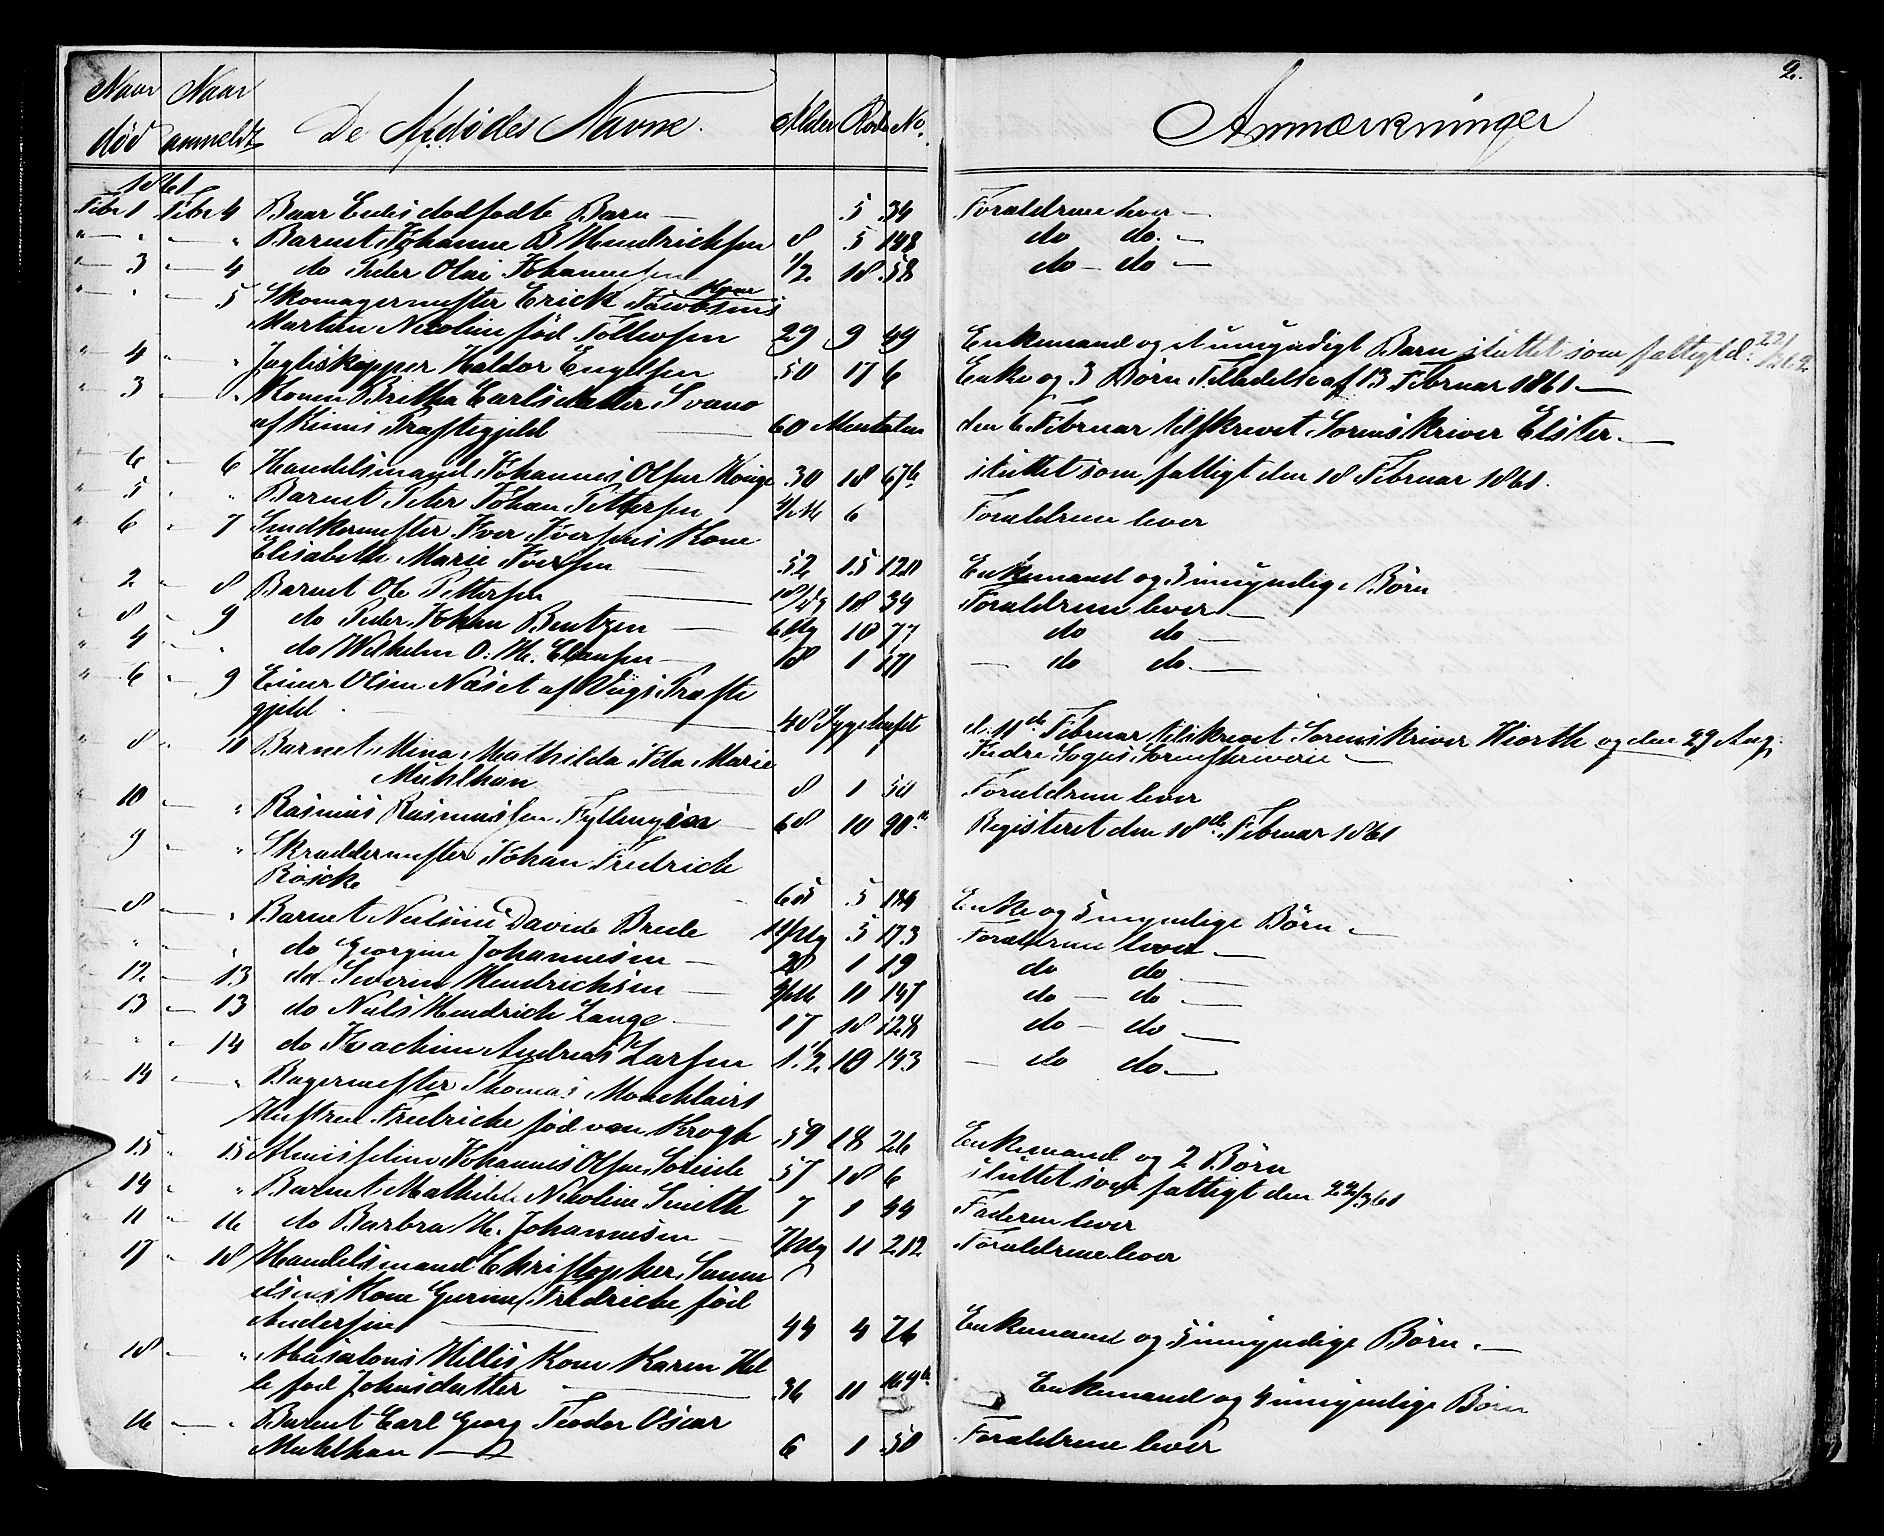 2.
Naar død Naar anmeldt De Afdødes Navne. Alder Rode No. Anmærkninger
1861
Febr 1 Febr 4 Baar Eides dødfødte Barn — 5 34 Forældrene lever —
" — " — " Barnet Johanne B Hendrichsen 8 5 148 do do. —
" — 3 — 4 do Peder Olai Johannesen 1/2 18 58 do — do —
" — " — 5 Skomagermester Erick Jacobsens Kone
Martha Nicoline fød Tollevsen 29 9 49 Enkemand og et umyndigt Barn sluttet som fattigt d.
" 4 " " Jagtskipper Haldor Engelsen 50 17 6 Enke og 3 Børn Tilladelse af 13 Februar 1861 —
" 3 — " Konen Britha Carlsdatter Svanø
af Kinns Præstegjeld — 60 den 6 Februar tilskrevet Sorenskriver Elster. —
" 6 — 6 Handelsmand Johannes Olsen 30 18 67b sluttet som fattigt den 18 Februar 1861.
" 5 " " Barnet Peter Johan Pettersen 6 Forældrene lever
" 6 " 7 Snedkermester Iver Iversens Kone
Elisabeth Marie Iversen — 52 15 120 Enkemand og 3 umyndige Børn
" 2 — 8 Barnet Ole Pettersen — 18 34 Forældrene lever —
" 8 — 9 do Peder Johan Bentzen — 6 10 77 do do —
" 4 — " do Wilhelm O. M. Clausen — 18 1 171 — do do. —
" 6 — 9 Einer Olsen Næset af Viigs Præste
gjeld — 48 d. 11te Februar tilskrevet Sorenskriver Hiorth og den 29 Aug.
" 8 " 10 Barnet Mina Mathilda Ida Marie Indre Sogns Sorenskriverie —
Muhlhan 8 1 50 Forældrene lever
" 10 — " Rasmus Rasmussen Fyllingen 68 10 90a Registeret den 18de Februar 1861
" 9 — " Skræddermester Johan Fredrich
Röscke — 65 5 Enke og 5 umyndige Børn —
" 8 — " Barnet Davide Brede 5 173 Forældrene lever —
" " — " do Georgine Johannesen — 28 1 19 do do —
" 12 — 13 do Severin Hendrichsen — 11 147 do — do —
" 13 — 13 do Nils Hendrich Lange — 17 18 128 do — do —
" " " 14 do Joachim Andreas Larsen 1 1/2 10 143 — do do —
" 14 — " Bagermester Thomas
Hustrue Fredricke fød von Krogh 59 18 26 Enkemand og 2 Børn
" 15 " 15 Almisselem Johannes Olsen 57 18 6 sluttet som fattigt den 22/3 61
" 14 " " Barnet Mathilde Nicoline Smith 7 1 44 Faderen lever
" 11 " 16 do Barbra M. Johannesen — 11 212 Forældrene lever
" 17 " 18 Handelsmand Christopher Samu
elsens Kone Gurine Fredricke fød
Andersen — 44 4 76 Enkemand og 5 umyndige Børn —
" 18 — " Absalons Hilles Kone Karen Hel
le fød Johnsdatter — 36 11 169b Enkemand og 4 umyndige Børn
" 16 — " Barnet Carl Georg Teodor Oscar
Muhlhan — 6 1 50 Forældrene lever